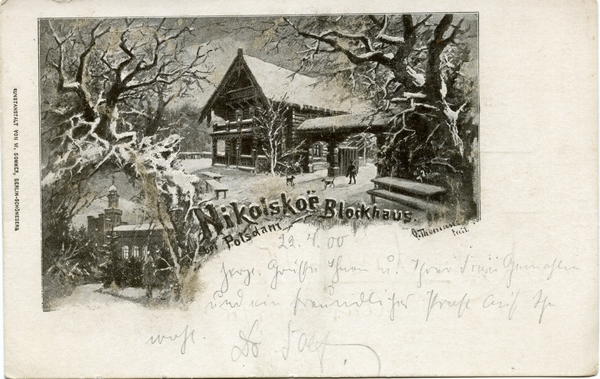 KUNSTANSTALT VON W. SOMMER, BERLIN-SCHÖNEBERG
Nikolskoë Blockhaus.
Potsdam
22.4.00
herzl. Grüße Ihnen u. Ihrer Frau Gemahlin
und ein freundliches Prost auf Ihr
wohl.